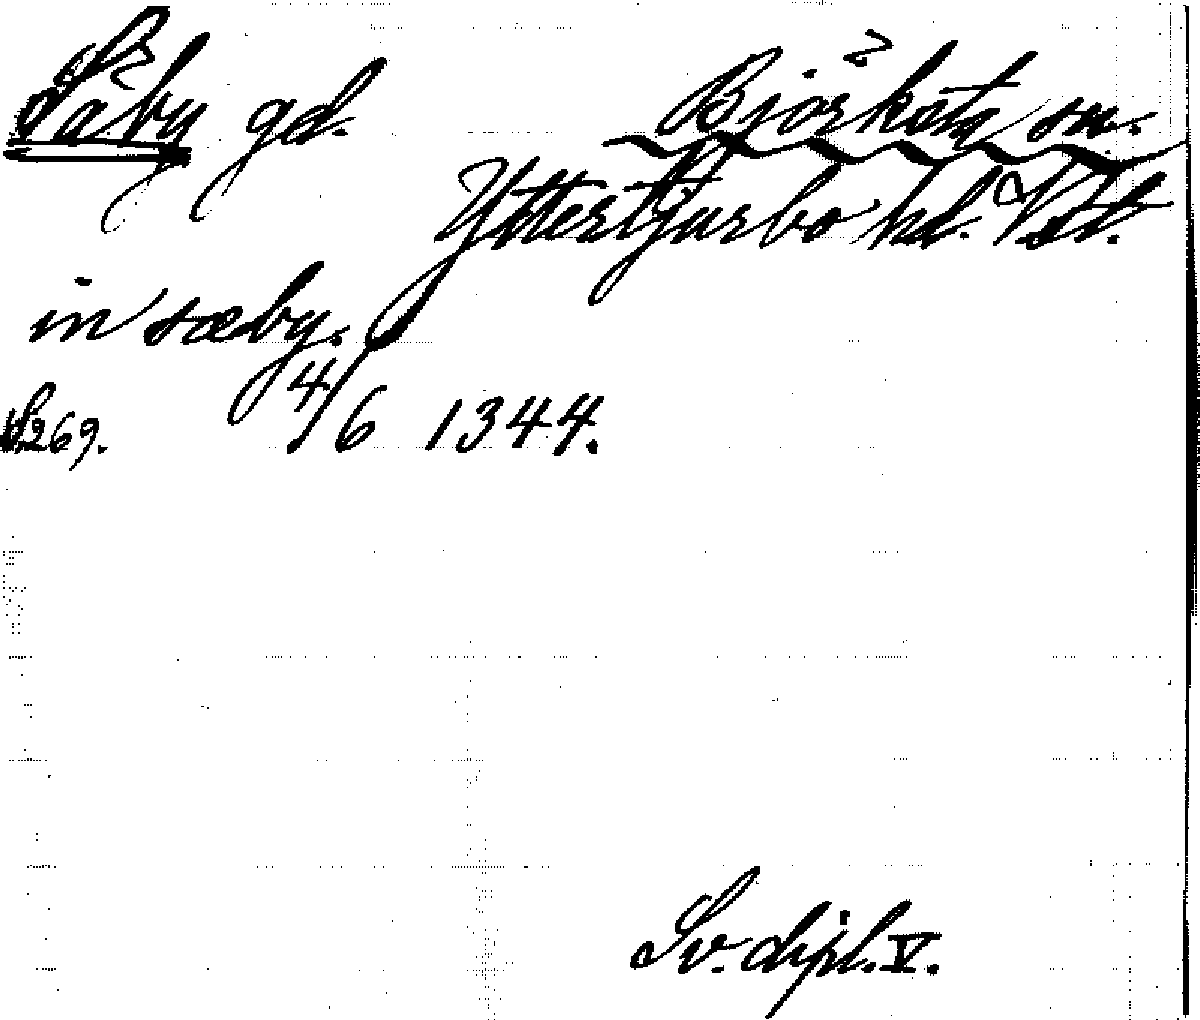 Säby gd. Björksta sn.
Yttertjurbo hd. Vstl.
in sæby.
S. 269. 4/6 1344.
Sv. dipl. V.